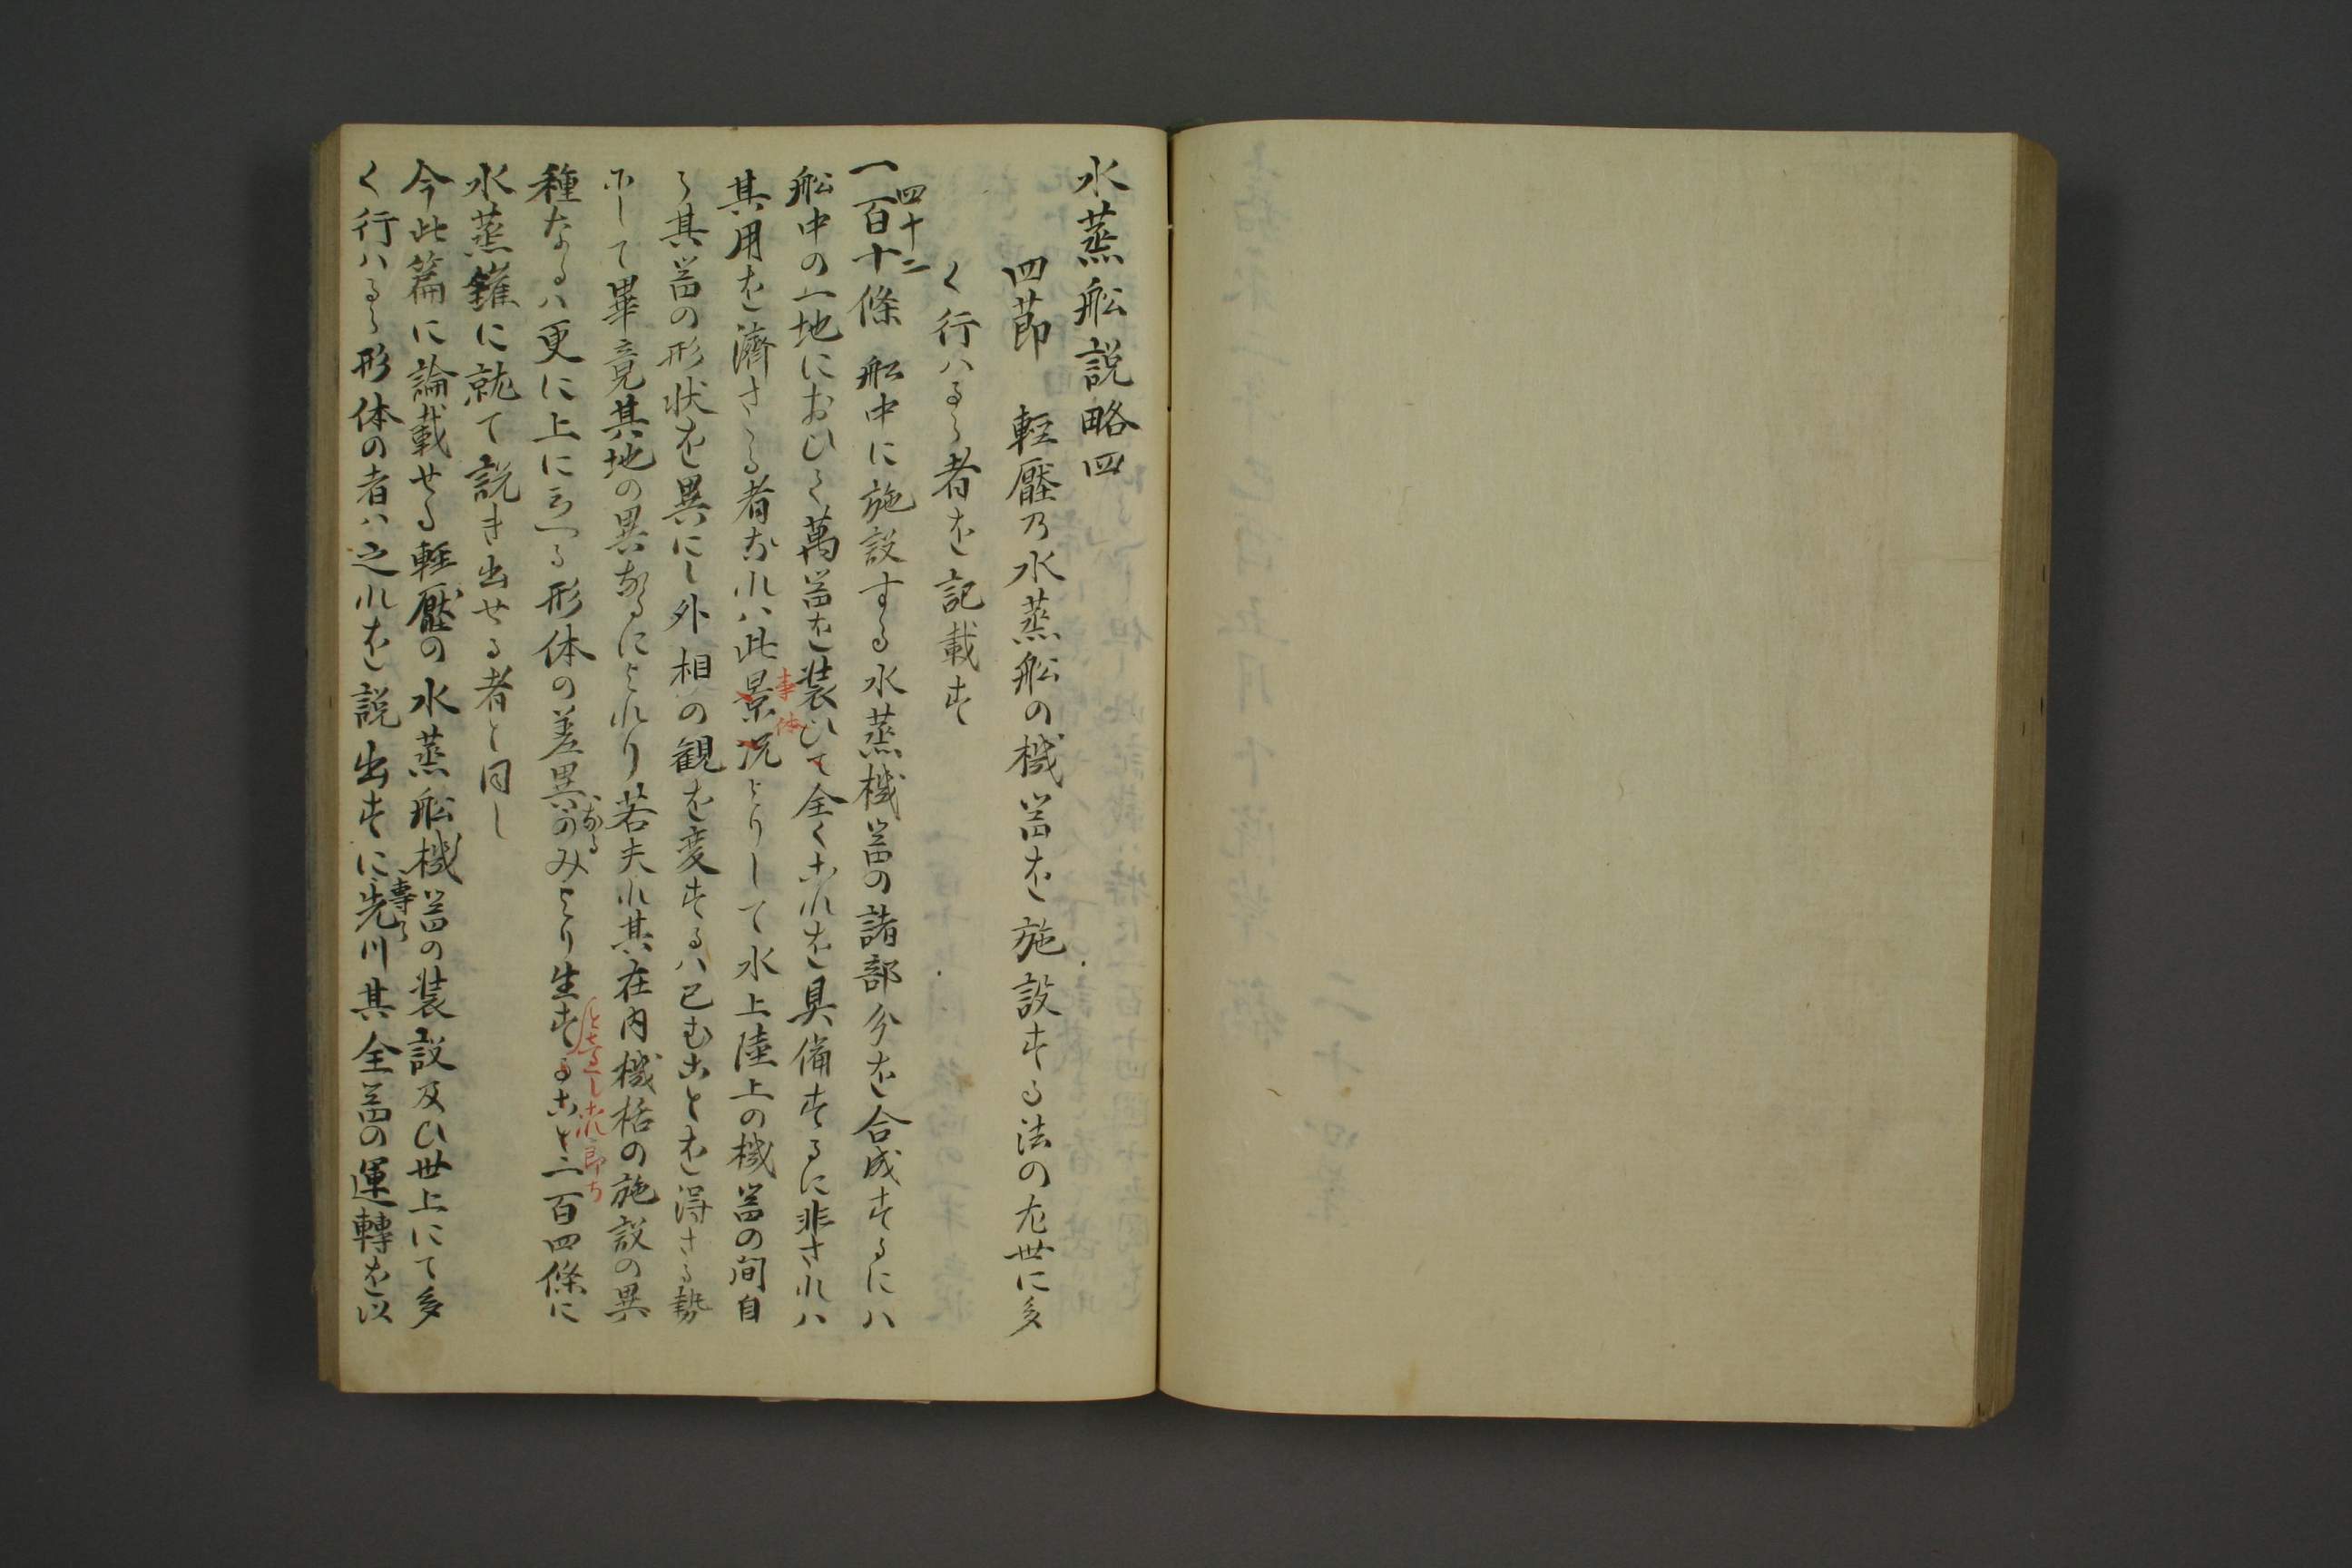 水蒸舩説略四
四節 軽壓乃水蒸舩の機噐を施設する法の尤世に多
く行ハるゝ者を記載す
四十二
一百十條 舩中に施設する水蒸機噐の諸部分を合成するにハ
舩中の一地におひて萬噐を装ひて全くこれを具備するに非されハ
事体
其用を濟さゝる者なれハ此景况よりして水上陸上の機噐の間自
ら其噐の形状を異にし外相の観を変するハ已むことを得さる勢
にして畢竟其地の異なるによれり若夫れ其在内機栝の施設の異
なる
これ即ち
種なるハ更に上に云へる形体の差異のみより生することニ百四條に
水蒸鑵に就て説き出せる者と同し
今此篇に論載せる軽壓の水蒸舩機噐の装設及ひ世上にて多
專ら
く行ハるゝ形体の者ハ之れを説出すに先川其全噐の運轉を以